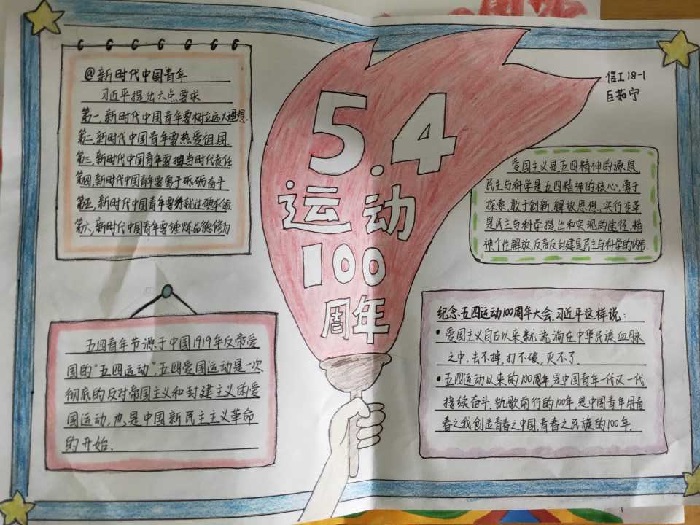 @新时代中国青年
习近平提出六点要求
第一、新时代中国青年要树立远大理想
第二、新时代中国青年要热爱祖国
第三、新时代中国青年要担当时代责任
第四、新时代中国青年要勇于砥砺奋斗
第五、新时代中国青年要练就过硬本领
第六、新时代中国青年要锤炼品德修为
五四青年节源于中国1919年反帝爱
国的"五四运动",五四爱国运动是一次
彻底的反对帝国主义和封建主义的爱
国运动,也是中国新民主主义革命
的开始.
5.4
运动
100
周年
18-1
爱国主义是五四精神的源泉
民主与科学是五四精神的核心,勇于
探索,敢于创新,解放思想,实行变革
是民主与科学提出和实现的途径,
纪念五四运动100周年大会,习近平这样说:
• 爱国主义自古以来就流淌在中华民族血脉
之中,去不掉,打不破,灭不了.
• 五四运动以来的100年,是中国青年一代又一代
接续奋斗、凯歌前行的100年,是中国青年用青
春之我创造青春之中国,青春之民族的100年.